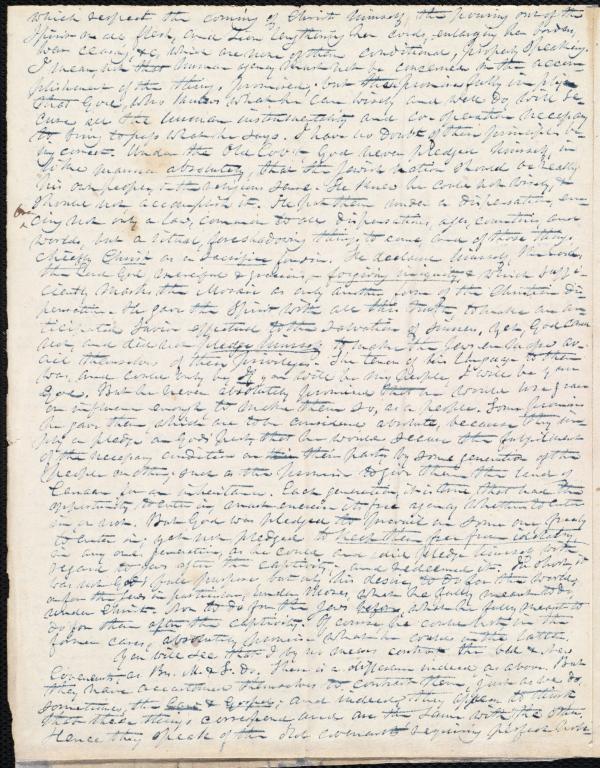 which respect the coming of Christ himself, the pouring out of the
Spirit on all flesh, and Zion lengthening her cords, enlarging her borders,
war ceasing, &c, which are none of them conditional, properly speaking.
I mean, not that human agency must not be concerned in the accom-
plishment of the things promised; but the promise fully implies
that God, who knows what he can wisely and well do, will se-
cure all the human instrumentality and co-operation necessary
to bring to pass what he says. I have no doubt of the principle be-
ing correct. Under the Old Cov't God never pledged himself, in
like manner absolutely, that the Jewish nation should be really
his own people, in the religious sense. He knew he could not wisely, &
should not accomplish it. He put them under a dispensation, em-
bracing not only a law, common to all dispensations, ages, countries and
worlds, but a ritual, foreshadowing things to come, and of those things,
chiefly Christ as a sacrifice for sin. He declared himself, the Lord,
the Lord God merciful & gracious, forgiving iniquity, & which suffi-
ciently marks the Mosaic as only another form of the Christian dis-
pensation. He gave the Spirit with all this truth to make an an-
ticipated Savior effectual to the salvation of sinners. Yet, God could
not, and did not pledge himself to make the Jews en masse av-
ail themselves of their privileges. The tenor of his language to them
was, and could only be If you will be my people, I will be your
God. But he never absolutely promised that he would use
an influence enough to make them so, as a people. Some promises
he gave them, which are to be considered absolute, because they im-
ply a pledge on God's part, that he would secure the fulfilment
of the necessary condition on their part, by some generation of the
people or other; such as the promise to give them the land of
Canaan for an inheritance. Each generation, it is true that had the
opportunity to enter in, must exercise its free agency whether to enter
in or not. But God was pledged to prevail on some one
to enter in; yet not pledged to keep them free from idolatry
in any one generation, as he could and did pledge himself with
regard to Jews after the captivity, and redeemed it. In short, it
was not God's full purpose, but only his desire, to do for the world,
or for the Jews in particular, under Moses, what he fully meant to do
under Christ. Nor to do for the Jews before, what he fully meant to
do for them after the captivity. Of course he could not in the
former cases, absolutely promise what he could in the latter.
You will see that I by no means contrast the old & new
Covenants as Brs. M. & S. do. There is a difference indeed as above. But
they have accustomed themselves to contrast them, just as we do
sometimes, the Law & Gospel; and indeed they appear to think
that these things correspond and are the same with the other.
Hence they speak of the Old covenant requiring perfect